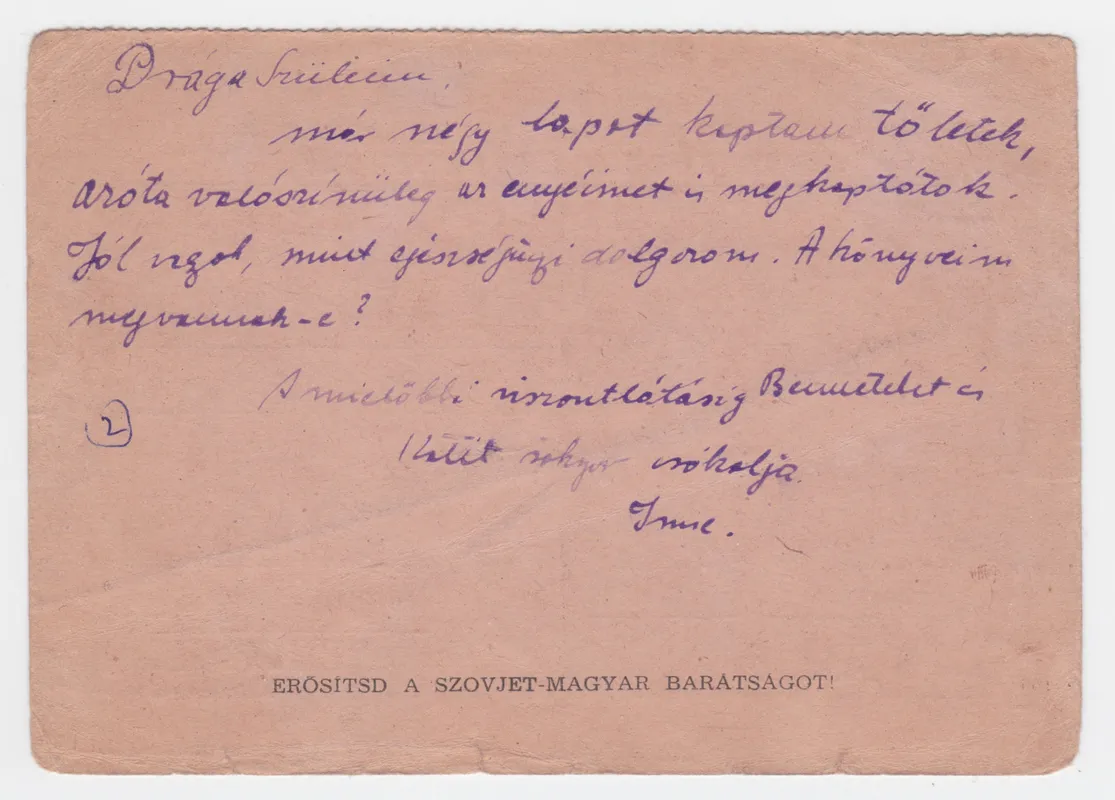 Drága Szüleim!
már négy lapot kaptam tőletek,
azóta valószínűleg az enyéimet is megkaptátok.
Jól vagyok, mint egészségügyi dolgozom. A könyveim
megvannak-e?
A mielőbbi viszontlátásig Benneteket és
2
Katit sokszor csókolja
Imre.
ERŐSÍTSD A SZOVJET-MAGYAR BARÁTSÁGOT!